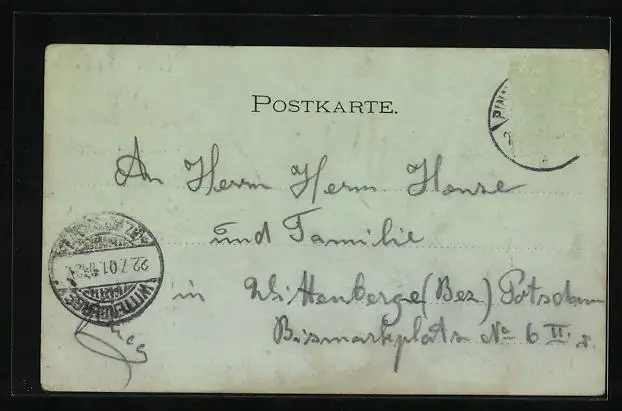 POSTKARTE.
An Herrn Herm Hanse
und Familie
in Wittenberge (Bez) Potsdam
Bismarkplatz No 6 II r.
22.7.01.
WITTENBERGE